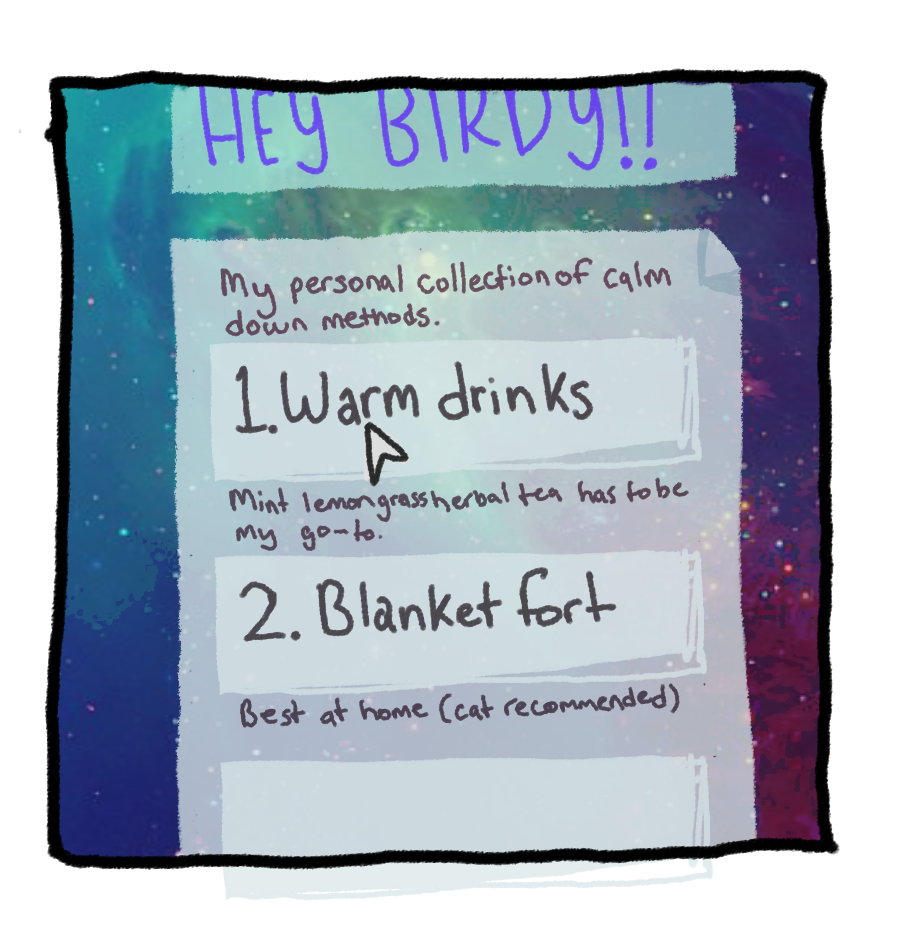 HEY BIRDY!!
My personal collection of calm
down methods.
1. Warm drinks
Mint lemongrass herbal tea has to be
my go-to.
2. Blanket fort
Best at home (cat recommended)